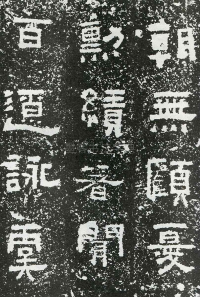 朝無顧憂
勳績著聞
百遼詠虞